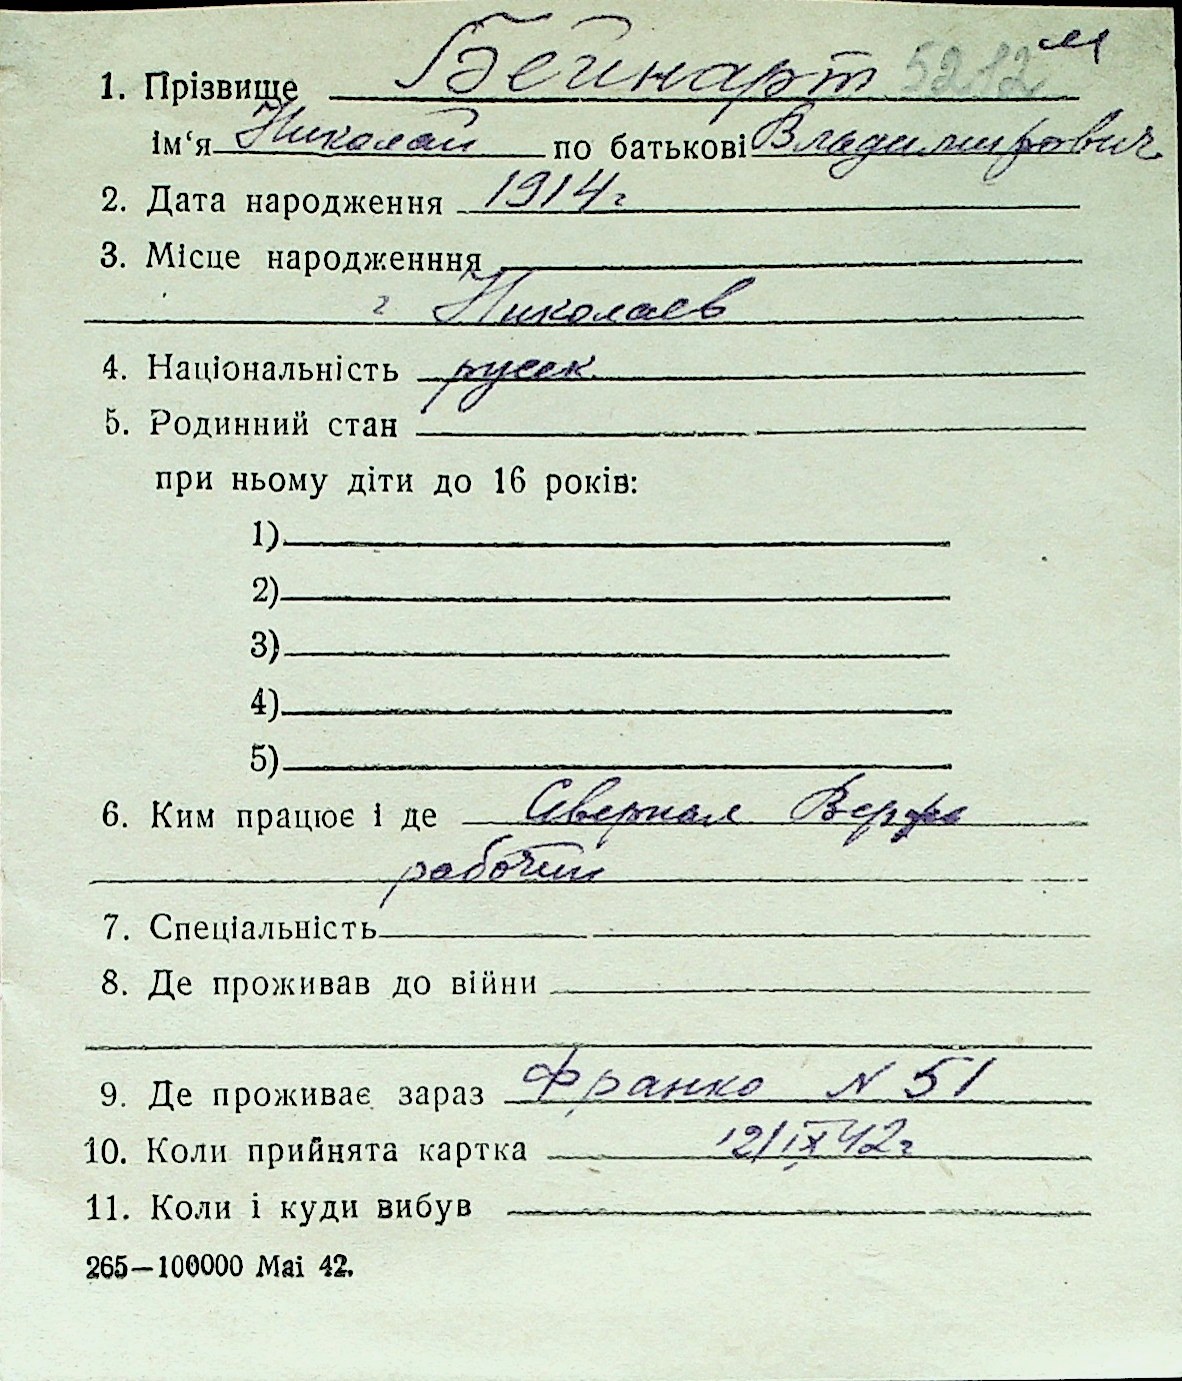 1. Прізвище Бейнарт 5212 м
ім‘я Николай по батькові Владимирович
2. Дата народження 1914 г
3. Місце народженння
г Николаев
4. Національність русск
5. Родинний стан
при ньому діти до 16 років:
1)
2)
3)
4)
5)
6. Ким працює і де Северная Верфь
рабочий
7. Спеціальність
8. Де проживав до війни
9. Де проживає зараз Франко N 51
10. Коли прийнята картка 12/IX 42 г
11. Коли і куди вибув
265—100000 Маі 42.